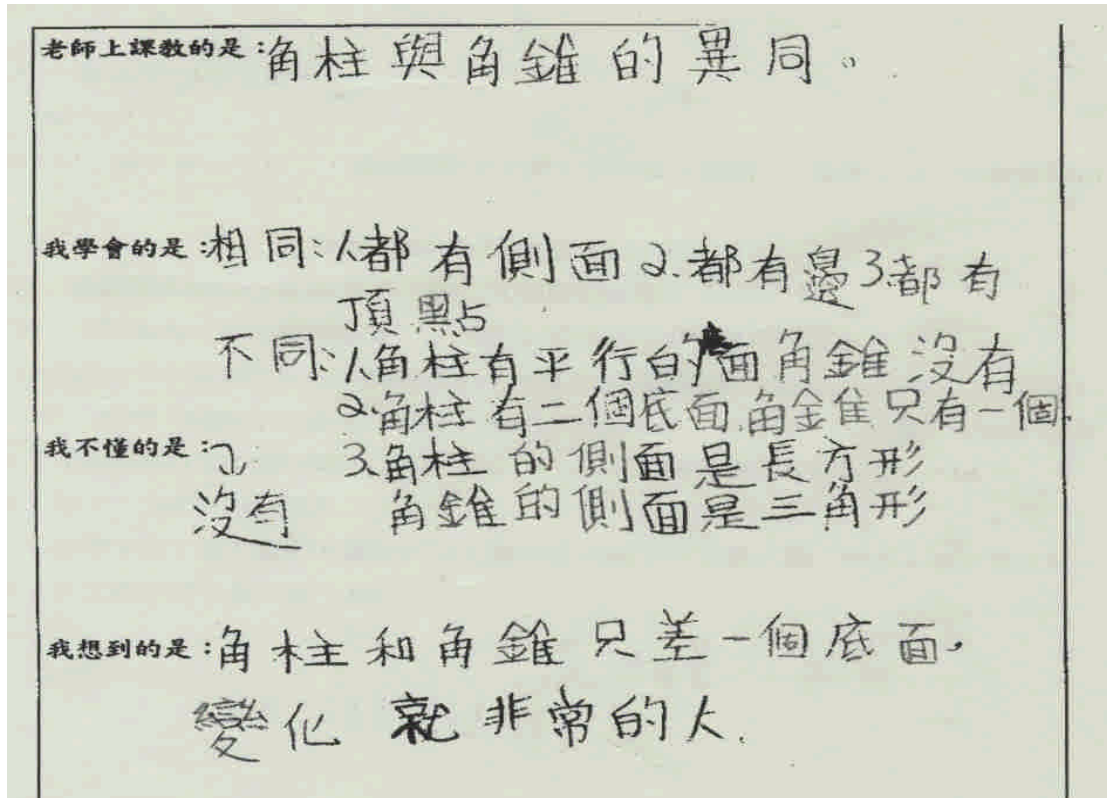 老師上課教的是:角柱與角錐的異同。
我學會的是:相同:1.都有側面2.都有邊3.都有
頂點
不同:1.角柱有平行的面角錐沒有
2.角柱有二個底面.角錐只有一個.
我不懂的是: 3.角柱的側面是長方形
沒有 角錐的側面是三角形
我想到的是:角柱和角錐只差一個底面,
變化就非常的大.